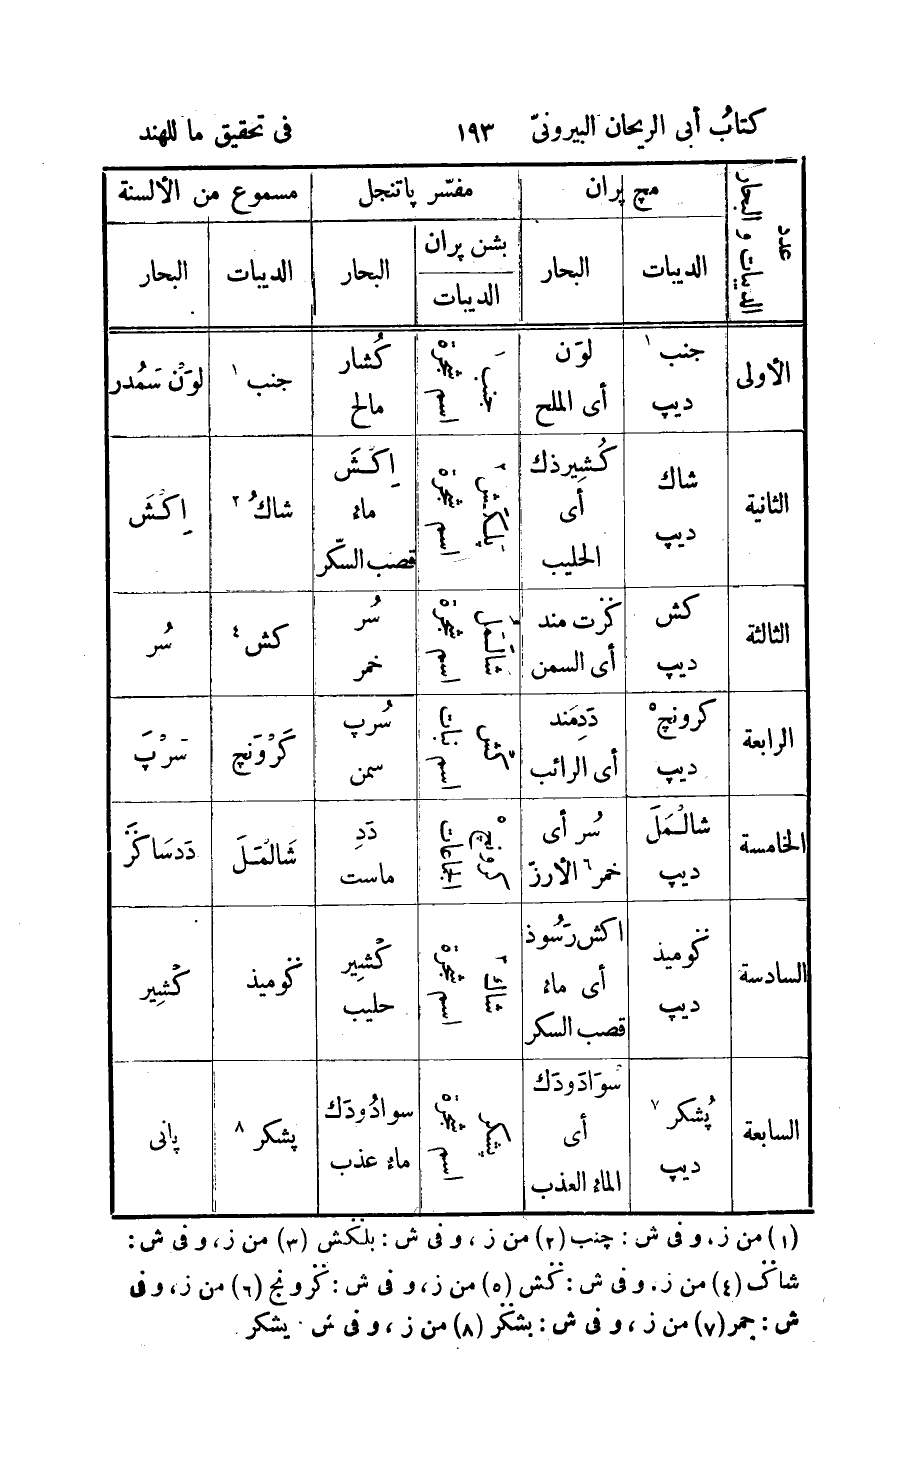 كتاب أبى الريحان البيرونىّ ١٩٣ فى تحقيق ما للهند
عدد الديبات و البحار
مچ پران
مفسّر پاتنجل
مسموع من الألسنة
الديبات
البحار
بشن پران
الديبات
البحار
الديبات
البحار
الأولى
جنب ١
ديپ
لوَن
أى الملح
جنب ١
اسم شجرة
كُشار
مالح
جنب ١
لوَن سَمُدر
الثانية
شاك
ديپ
كُشِيرذك
أى
الحليب
پلَكَش ٢
اسم شجرة
اِكَشَ
ماء
قصب السكّر
شاكُ ٣
اِكَشَ
الثالثة
كش
ديپ
كرت مند
أى السمن
شالَمَلُ
اسم شجرة
سُر
خمر
كش ٤
سُر
الرابعة
كرونچ ٥
ديپ
دَدِمَند
أى الرائب
كَش
اسم نبات
سُرپ
سمن
كَرْوَنچ
سَرپَ
الخامسة
شالْمَلَ
ديپ
سُر أى
خمر ٦ الأرزّ
كرونچ ٥
الجماعات
دَدِ
ماست
شَالمَلَ
دَدسَاكَرَ
السادسة
كوميذ
ديپ
اكش رَسُوذ
أى ماء
قصب السكر
شاك ٣
اسم شجرة
كْشِير
حليب
كوميذ
كْشِير
السابعة
پُشكر ٧
ديپ
سوَادَودَك
أى
الماء العذب
پشكر
اسم شجرة
سوادُودَك
ماء عذب
پشكر ٨
پانى
(١) من ز، و فى ش : چنب (٢) من ز ، و فى ش : بلكش (٣) من ز، و فى ش :
شاك (٤) من ز، و فى ش : كش (٥) من ز، و فى ش : كرونج (٦) من ز، و فى
ش : جمر (٧) من ز ، و فى ش : بشكر (٨) من ز ، و فى ش : يشكر .